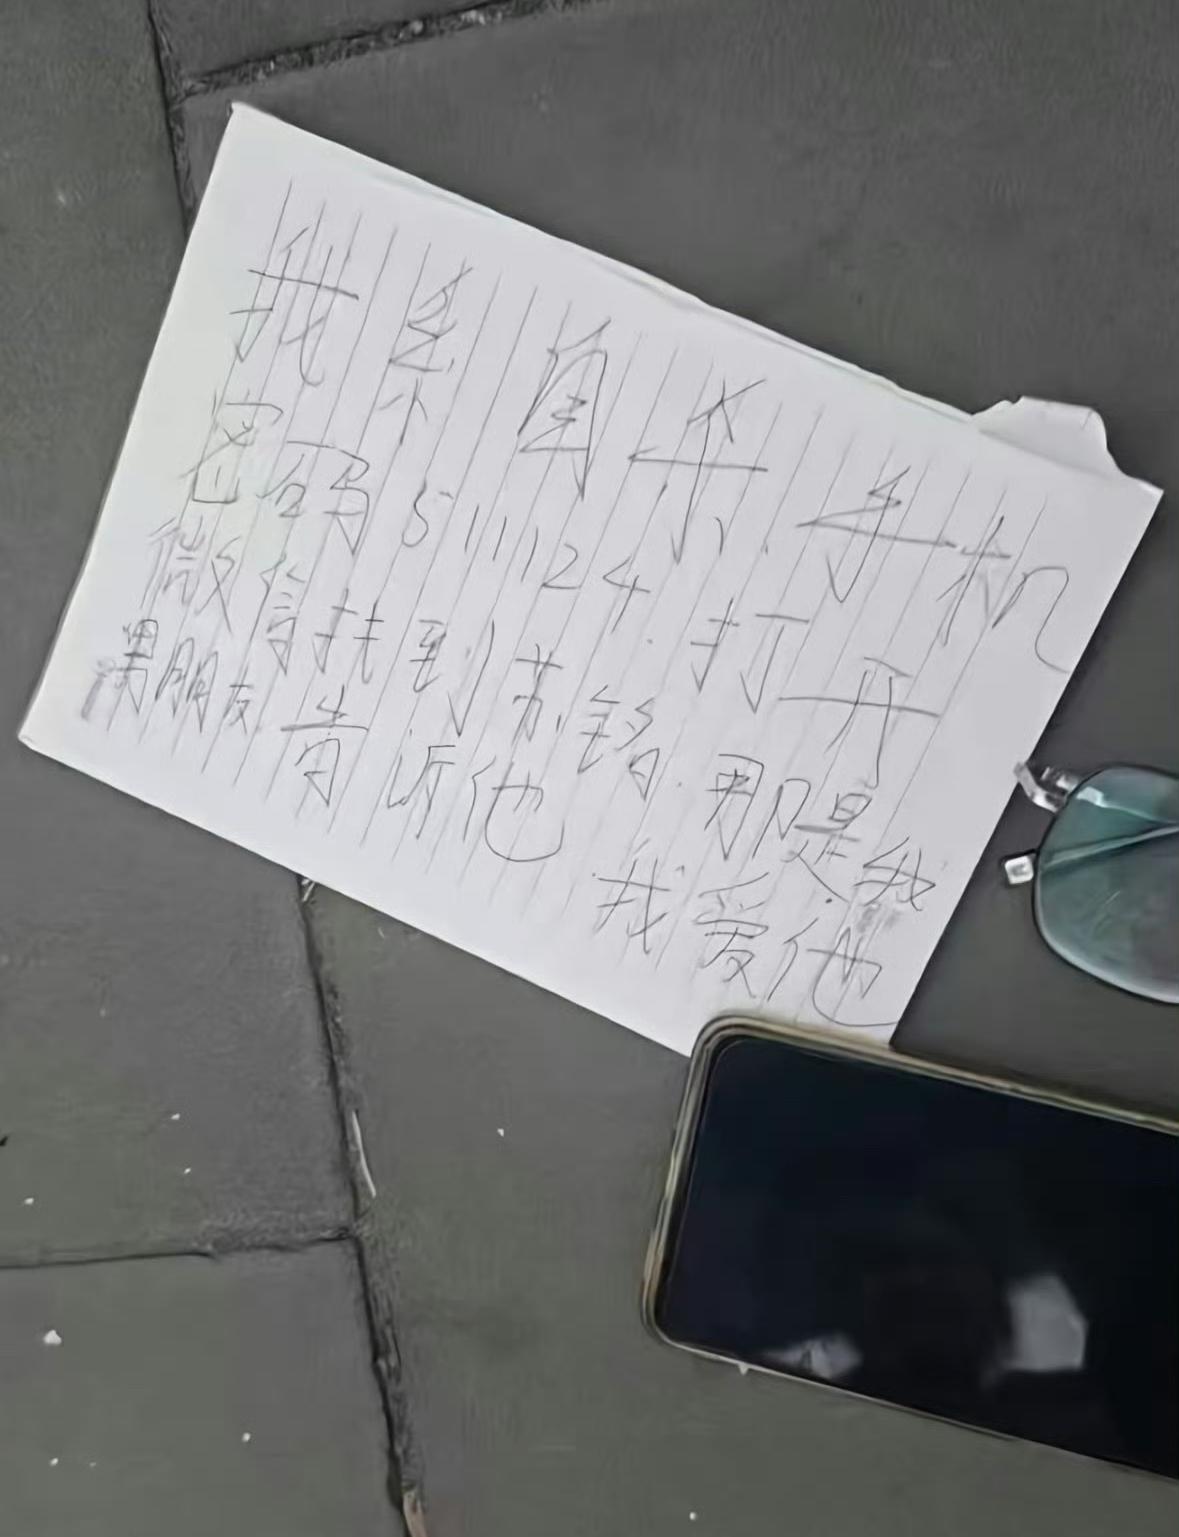 我系自杀,手机
密码511124.打开
微信找到苏铭.那是我
男朋友.告诉他
我爱他